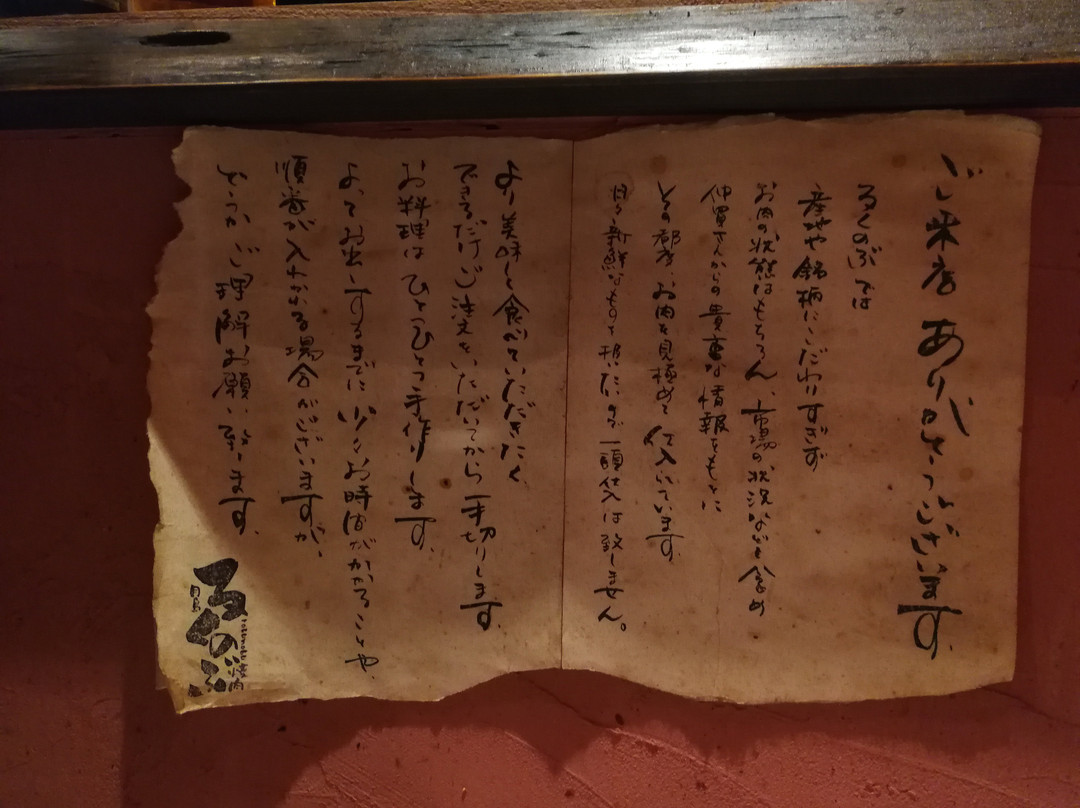 ご来店ありがとうございます。
ろくのぶでは
産地や銘柄にこだわりすぎず
お肉の状態はもちろん、市場の状況なども含め
仲買さんからの貴重な情報をもとに
その都度、お肉を見極めて仕入れています。
日々新鮮なものを扱いたいので一頭仕入は致しません。
より美味しく食べていただきたく、
できるだけご注文をいただいてから手切りします。
お料理はひとつひとつ手作りします。
よってお出しするまでに少々お時間がかかることや
順番が入れかわる場合がございますが、
どうかご理解お願い致します。
ろくのぶ
焼肉